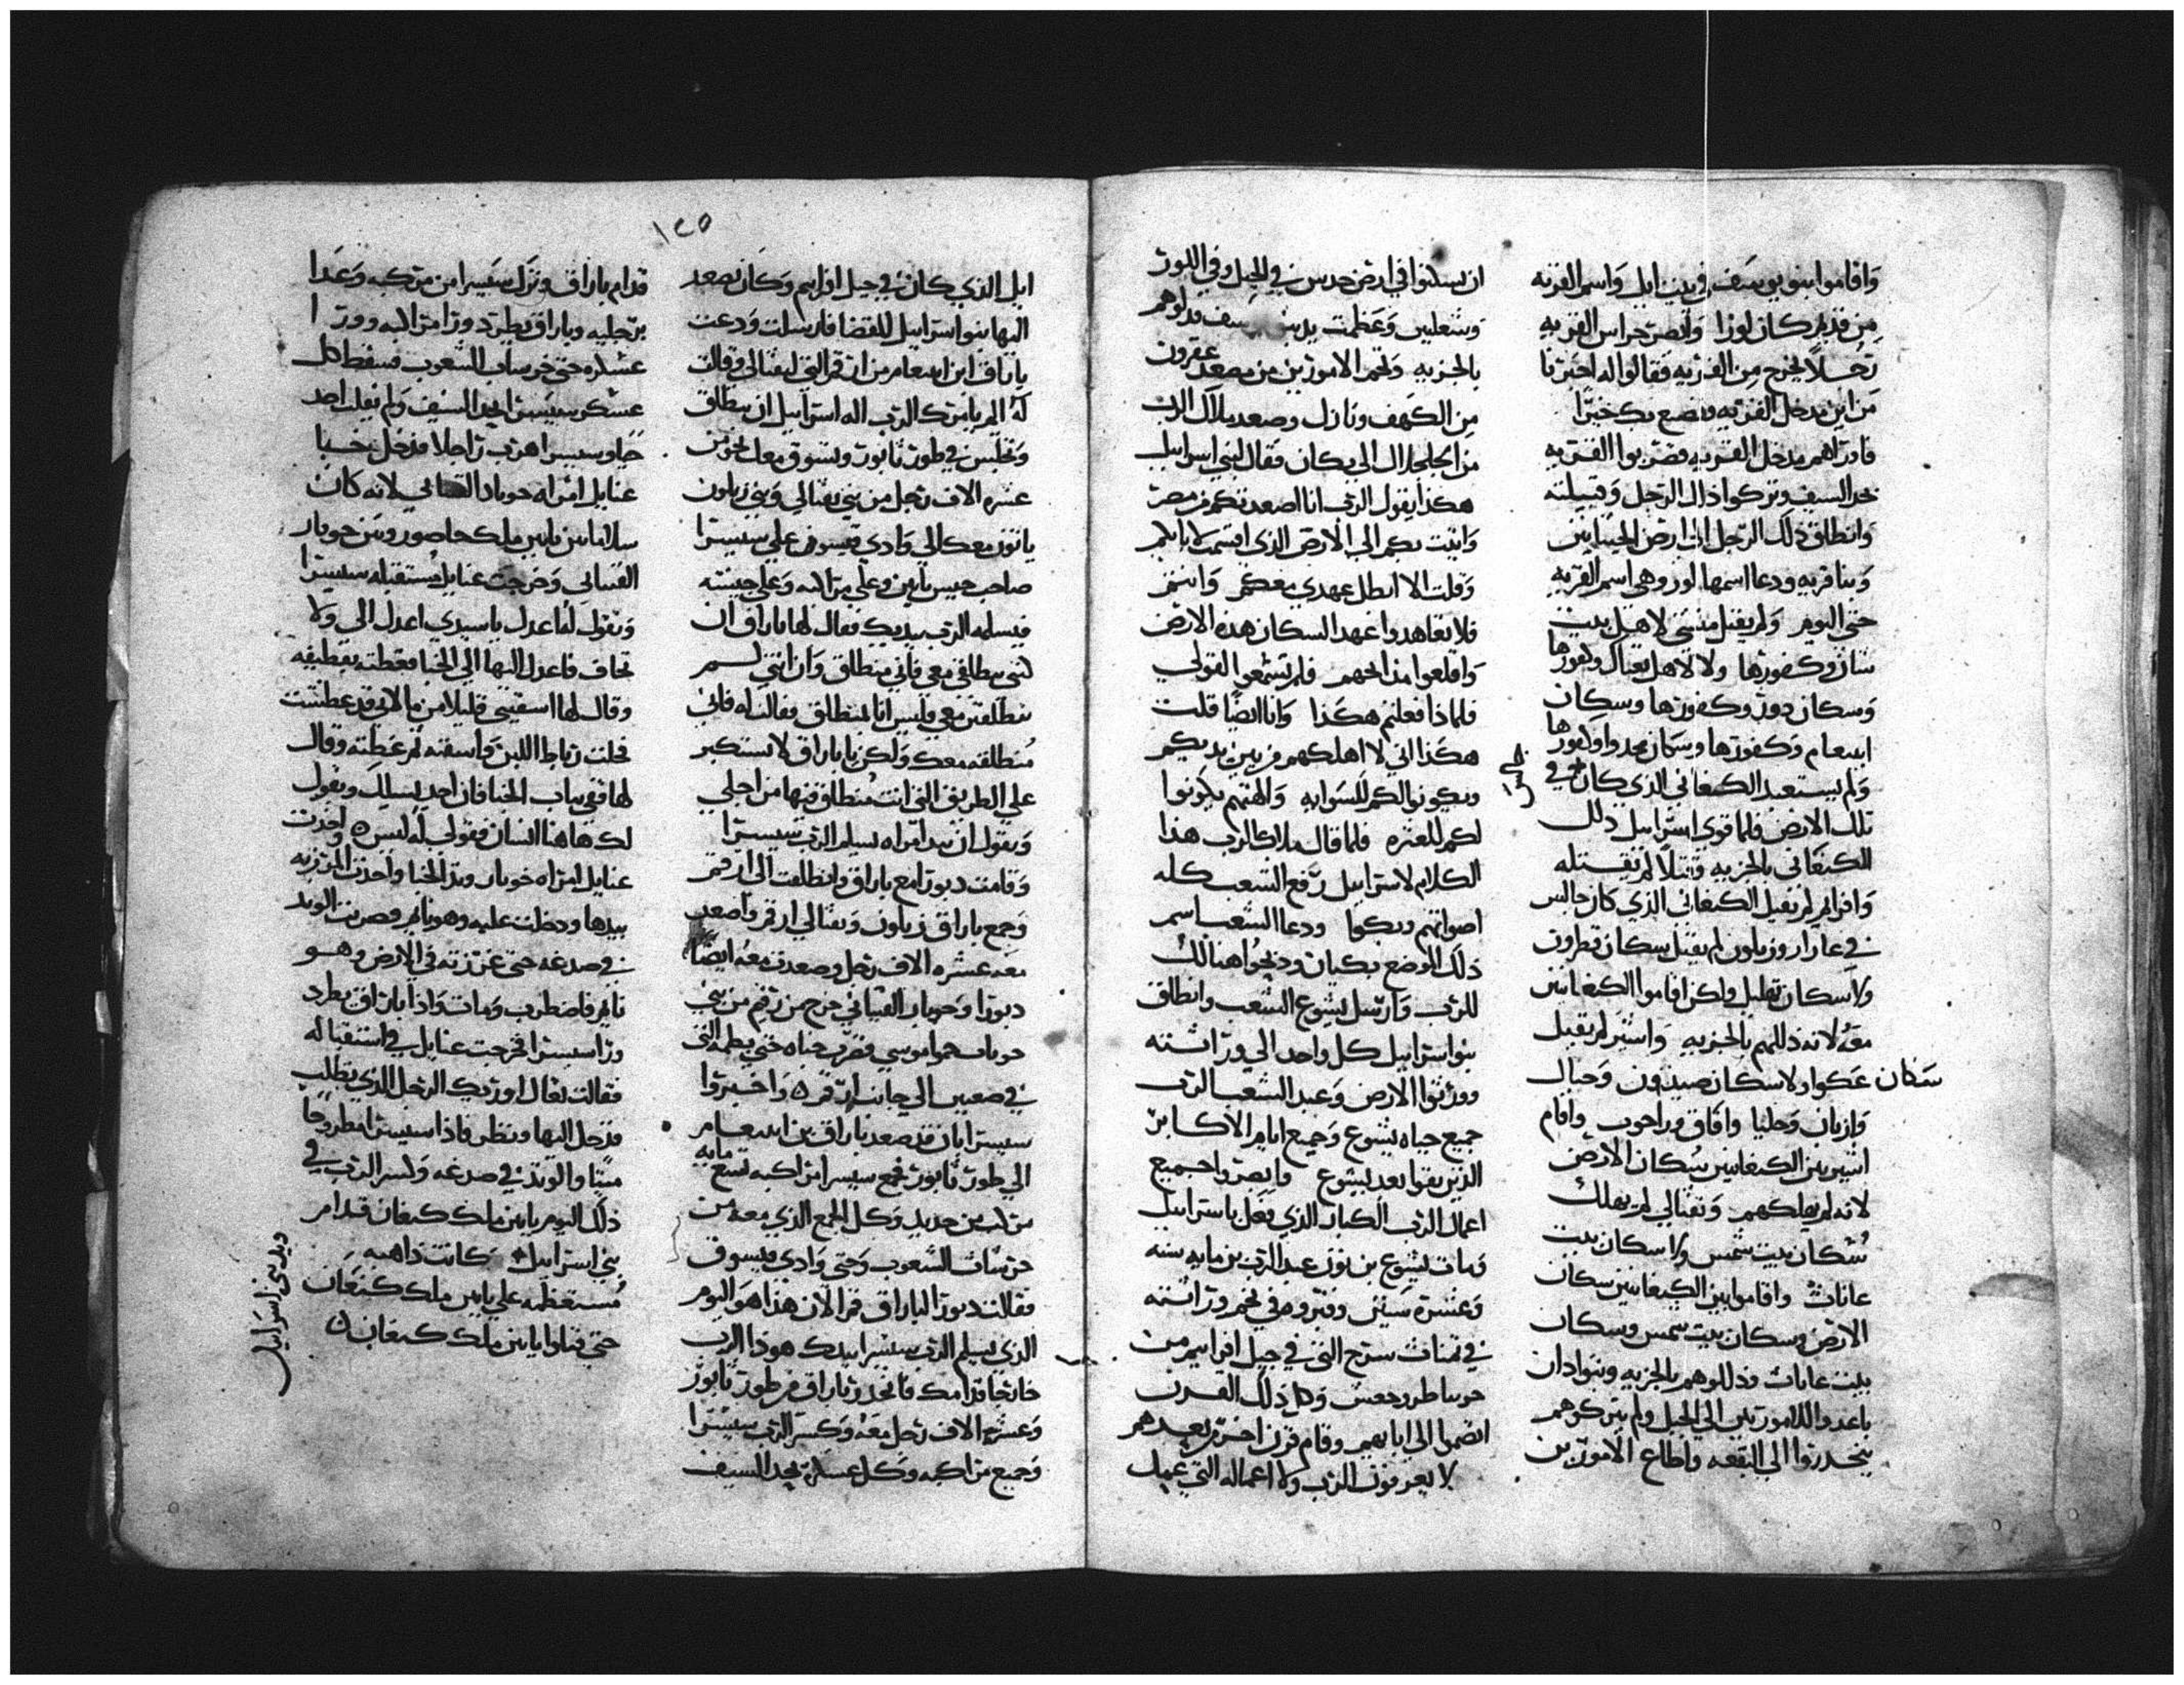 وَاقاموا بنو يوسَف في بيت ايل وَاسم القريه
مِن قديم كان لوزا وَابصر حراس القريه
رجُلاً يخرج مِن القريه فقالوا له اخبرنا
مَن اين مدخل القريه ونصنع بك خيرًا
فاوراهم مدخل القريه فضربوا القريه
بحد السيف وتركوا ذلك الرجل وَقبيلته
وَانطلق ذلك الرجل الى ارض الحيتانيين
وَبنا قريه ودعا اسمها لوز وهي اسم القريه
حتى اليوم وَلم يقتل منشى لاهل بيت
شان وكفورها ولا لاهل تعناك وكفورها
وَسكان دور وكفورها وسكان
ابلعام وَكفورها وسكان مجدوا وكفورها
وَلم يستعبد الكنعاني الذي كان في
تلك الارض فلما قوي اسرائيل ذلل
الكنعاني بالجزيه وَقتلاً لم يقتله
وَافرام لم يقتل الكنعاني الذي كان جالس
في عازار وزبلون لم يقتل سكان قطرون
ولا سكان تهليل ولكن اقاموا الكنعانيين
معَهُ لانه ذللهم بالجزيه وَاشير لم يقتل
سكان عَكوا ولا سكان صيدون وَحبال
وَازبان وَحلبا وافاق وراحوب واقام
اشير بين الكنعانيين سُكان الارض
لانه لم يهلكهم وَنفتالي لم يهلك
سُكان بيت شمس ولا سكان بيت
عاناث واقاموا بين الكنعانيين سكان
الارض وسكان بيت شمس وسكان
بيت عاناث وذللوهم بالجزيه وبنوا دان
باعدوا الاموريين الى الجبل ولم يتركوهم
ينحدروا الى البقعه واطاع الاموريين
ان يسكنوا في ارض حدس في الجبل وفي اللوز
وَشعلبين وَعَظمت يد يوسف فذلوهم
بالجزيه وَتخم الاموريين من مصعد عقرون
مِن الكهف ونازل وصعد ملاك الرب
من الجلجال الى بكان فقال لبني اسرائيل
هكذا يقول الرب انا اصعدتكم من مصر
وَاتيت بكم الى الارض الذي اقسمت لابايكم
وَقلت لا ابطل عهدي معكم وَانتم
فلا تعاهدوا عهد السكان هذه الارض
وَاقلعوا مذابحهم فلم تسمعوا لقولي
فلماذا فعلتم هكذا وَانا ايضًا قلت
هكذا اني لا اهلكهم من بين يديكم
ويكونوا لكم للسوايه وَالهتهم يكونوا
لكم للعثره فلما قال ملاك الرب هذا
الكلام لاسرائيل رفع الشعب كله
اصواتهم وبكوا ودعا الشعب اسم
ذلك الموضع بكيان وذبحُوا هنالك
للرب وَارسل يشوع الشعب وانطلق
بنو اسرائيل كل واحد الى وراثته
وورثوا الارض وَعبد الشعب الرب
جميع حياه يشوع وَجميع ايام الاكابر
الذين بقوا بعد يشوع وابصروا جميع
اعمال الرب الكبار الذي فعَل باسرائيل
وَمات يشوع بن نون عبد الرب بن مايه سنه
وَعشرة سَنين وقبروه في تخم وراثته
في تمنات سرح التي في جبل افرايم من
جربيا طور جعس وَكل ذلك القرن
انضموا الى ابايهم وقام قرن اخر من بعدهم
لا يعرفون الرب ولا اعماله التي عمل
١٢٥
ايل الذي كان في جبل افرايم وَكان يصعد
اليها بنو اسرائيل للقضا فارسلت وَدعت
باراق ابن ابيعام من ان قرا التي لنفتالي وقالت
لَهُ الم يامرك الرب اله اسرائيل ان ينطلق
وَتجلس في طور تابور وتسوق معك نحو من
عشره الاف رجل من بني نفتالي وَبني زبلون
ياتون معك الى وَادي قيسون على سيسرا
صاحب جيس يابين وعلى مراكبه وَعلى جيشه
فيسلمه الرب بيديك فقال لها باراق ان
انتي تنطلقي معي فاني منطلق وَان انتي لم
تنطلقين معي فليس انا بمنطلق فقالت له فاني
مُنطلقه معك وَلكن يا باراق لا تستكبر
على الطريق التي انت منطلق فيها من اجلي
وَتقول ان بيد امراه يسلم الرب سيسرا
وَقامت دبورا مع باراق وانطلقت الى ارقم
وَجمع باراق زبلون وَنفتالي ارقر واصعد
معَه عشره الاف رجل وصعدت معه ايضًا
دبورا وَحوبار القيناني خرج من رقم من بني
حوباب حموا موسي فضرب خباه حتى بطمه التي
في صعيين الى جانب ارقر ه وَاخبروا
سيسرا بان قد صعد باراق بن ابيعام
الى طور تابور فجمع سيسرا مراكبه تسع مايه
مركب من حديد وَكل الجمع الذي معه من
حرسات الشعوب وَحتى وَادي قيسون
فقالت دبورا لباراق قم الان هذا هو اليوم
الذي يسلم الرب سيسرا بيدك هوذا الرب
خارجا قدامك فانحدر باراق من طور تابور
وَعشره الاف رجل معَه وَكسر الرب سيسرا
وَجميع مراكبه وَكل عسكره بحد السيف
قدام باراق وَنزل سيسرا من مركبه وَعَدا
برجليه وباراق يطرد ورا مراكبه وورا
عسكره حتى خرسات الشعوب فسقط كل
عسكر سيسرا بحد السيف وَلم يفلت احد
حَيا وسيسرا هرب راجلا فدخل خبا
عنايل امراه حوبار القيناني لانه كان
سلاما بين يابين ملك حاصور وبَين حوبار
القيناني وَخرجت عنايل مستقبله سيسرا
وَتقول لهُ اعدل يا سيدي اعدل الي ولا
تخاف فاعدل اليها الى الخبا فغطته بقطيفه
وقال لها اسقيني قليلا من ما لاني قد عطشت
فحلت رباط اللبن وَاسقته ثم غطته وقال
لها قفي بباب الخبا فان احد يسالك ويقول
لك هاهنا انسان فقولي له ليس ه واخذت
عنايل امراه حوبار وتد الخبا واخذت المرزبه
بيدها ودخلت عليه وهو نايم وضربت الوتد
في صدغه حتى غرزته في الارض وهو
نايم فاضطرب وَمات وَاذا باراق يطرد
ورا سيسرا فخرجت عنايل في استقباله
فقالت تعال اوريك الرجل الذي تطلب
فدخل اليها ونظر فاذا سيسرا مطروحًا
ميتا والوتد في صدغه وَكسر الرب في
ذلك اليوم يابين ملك كنعان قدام
بني اسرائيل كانت ذاهبه
مُستعظمه على يابين ملك كنعَان
حتى قتلوا يابين ملك كنعان
ويد بني اسرائيل